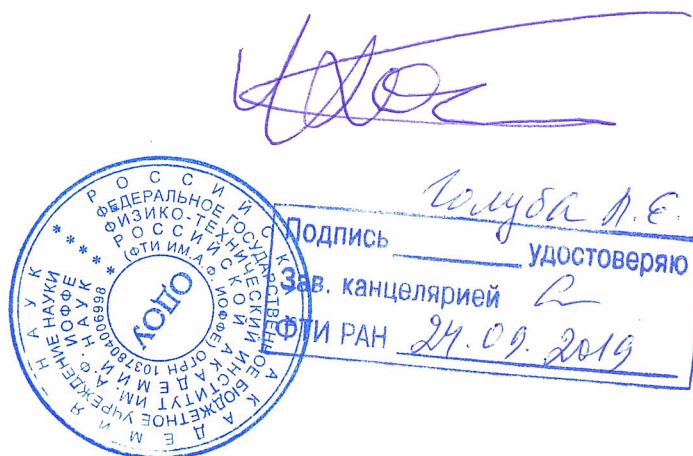 Голуба Л.Е.
Подпись удостоверяю
Зав. канцелярией
ФТИ РАН 24.09.2019
РОССИЙСКАЯ АКАДЕМИЯ НАУК
ФЕДЕРАЛЬНОЕ ГОСУДАРСТВЕННОЕ БЮДЖЕТНОЕ УЧРЕЖДЕНИЕ НАУКИ
ФИЗИКО-ТЕХНИЧЕСКИЙ ИНСТИТУТ ИМ. А.Ф. ИОФФЕ
РОССИЙСКОЙ АКАДЕМИИ НАУК
(ФТИ ИМ. А.Ф. ИОФФЕ) ОГРН 1037804006998
ОДОУ